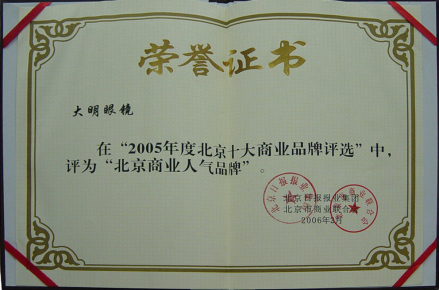 荣誉证书
大明眼镜
在“2005年度北京十大商业品牌评选”中，
评为“北京商业人气品牌”。
北京日报报业集团
北京市商业联合会
2006年2月